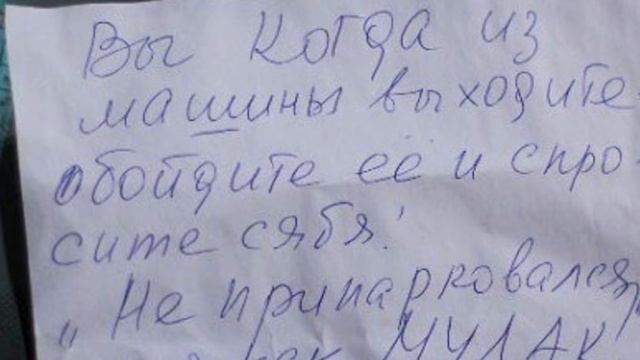 Вы когда из
машины выходите
обойдите её и спро-
сите сябя!
„Не припарковался
как МУДАК